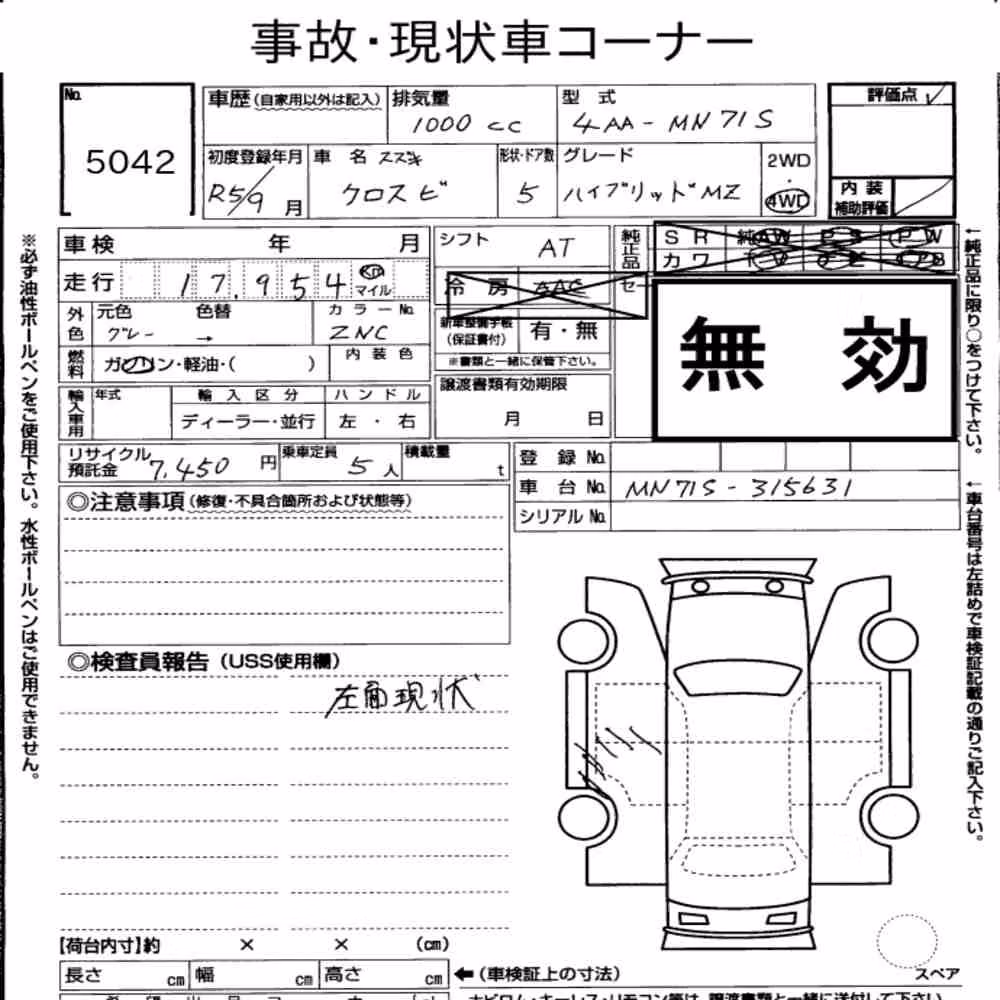 事故・現状車コーナー
No.
5042
車歴(自家用以外は記入)
排気量
1000 cc
型式
4AA-MN71S
評価点
初度登録年月
R5/9月
車名 スズキ
クロスビ
形状・ドア数
5
グレード
ハイブリッドMZ
2WD
・
4WD
内装
補助評価
車検 年 月
シフト AT
純正品
SR
カワ
走行 17.954 km
マイル
冷房 AAC
外色
元色 色替
グレー →
カラーNo.
ZNC
新車整備手帳
(保証書付)
有・無
※書類と一緒に保管下さい。
無効
燃料
ガソリン・軽油・( )
内装色
輸入車用
年式
輸入区分
ディーラー・並行
ハンドル
左・右
譲渡書類有効期限
月 日
リサイクル預託金 7,450円
乗車定員 5人
積載量 t
登録No.
車台No. MN71S-315631
シリアルNo.
◎注意事項(修復・不具合箇所および状態等)
◎検査員報告(USS使用欄)
左面現状
【荷台内寸】約 × × (cm)
長さ cm 幅 cm 高さ cm
←(車検証上の寸法)
スペア
※必ず油性ボールペンをご使用下さい。水性ボールペンはご使用できません。
←純正品に限り○をつけて下さい。
←車台番号は左詰めで車検証記載の通りご記入下さい。